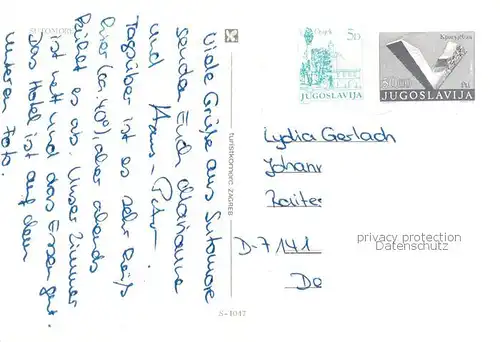 SUTOMORE
Viele Grüße aus Sutomore
senden Euch Marianne
und Hans-Peter.
Tagsüber ist es sehr heiß
hier (ca. 40°), aber abends
kühlt es ab. Unser Zimmer
ist nett und das Essen gut.
Das Hotel ist auf dem
unteren Foto.
turistkomerc ZAGREB
S-1047
Osijek
50
JUGOSLAVIJA
JUGOSLAVIJA
Lydia Gerlach
Johann
Reiter
D-7141
De
privacy protection
Datenschutz